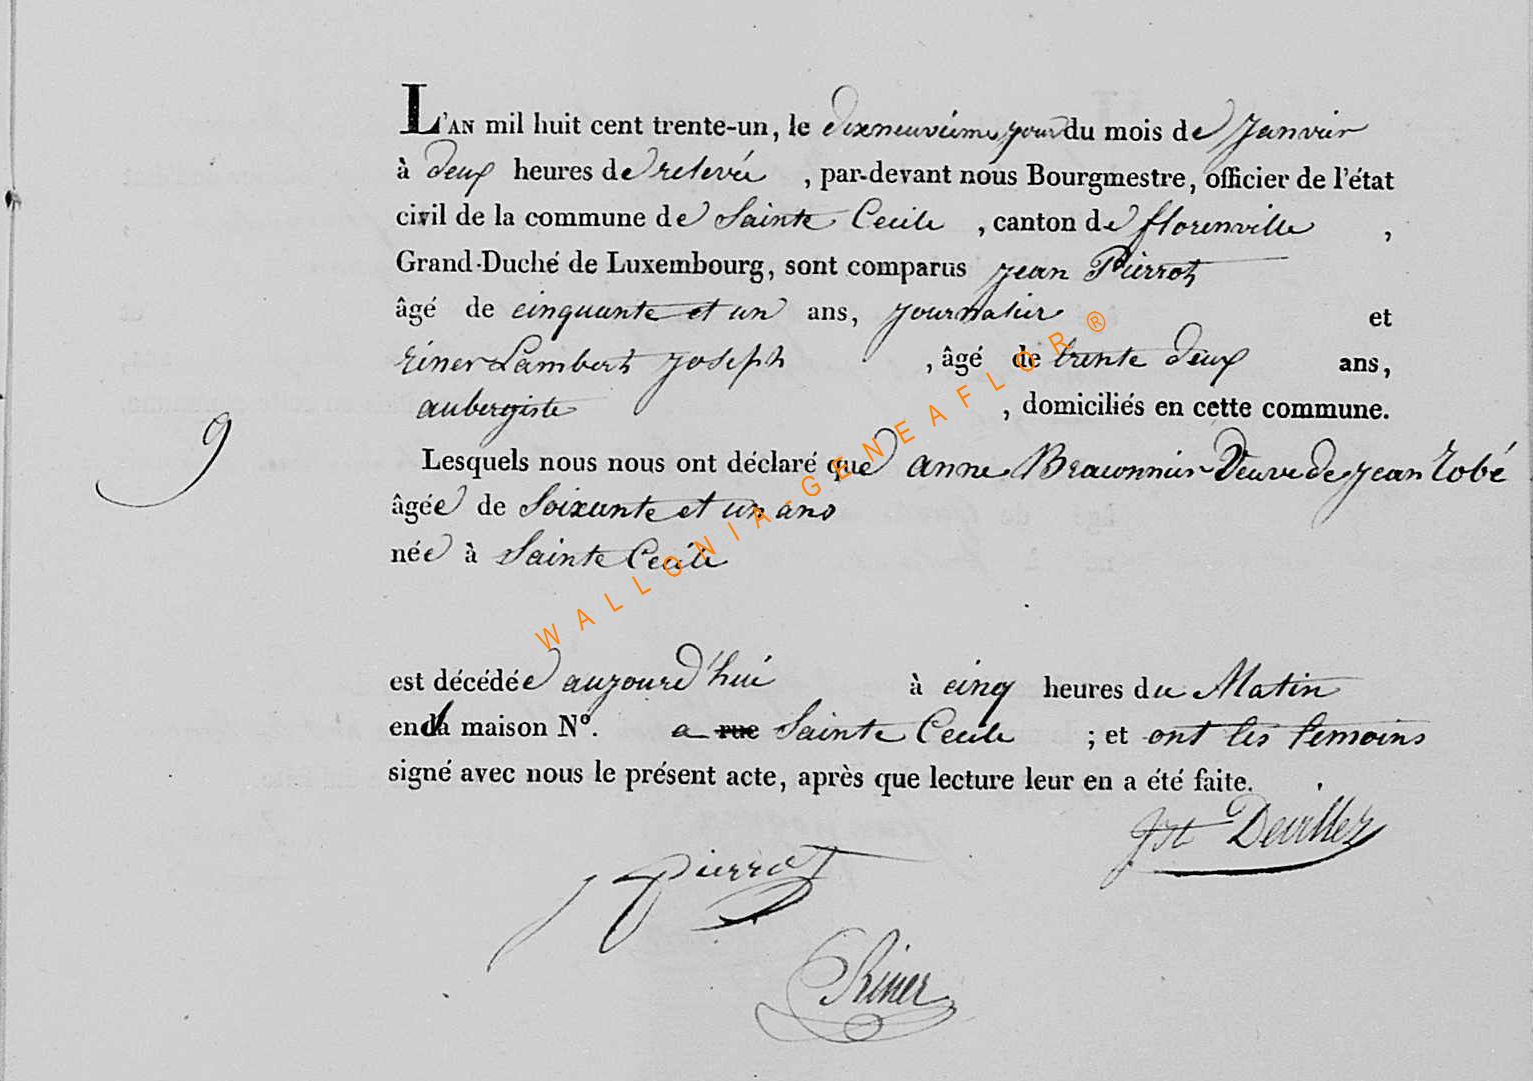 L'AN mil huit cent trente-un, le dixneuvieme jour du mois de Janvier
à deux heures de relevée , par-devant nous Bourgmestre, officier de l'état
civil de la commune de Sainte Cecile , canton de florenville ,
Grand-Duché de Luxembourg, sont comparus jean Pierrot
âgé de cinquante et un ans, journalier et
Riner Lambert joseph , âgé de trente deux ans,
aubergiste , domiciliés en cette commune.
9
Lesquels nous nous ont déclaré que anne Braconnier Veuve de jean Robé
âgée de Soixante et un ans
née à Sainte Cecile
est décédée aujourd'hui à cinq heures du Matin
en la maison N°. a rue Sainte Cecile ; et ont les temoins
signé avec nous le présent acte, après que lecture leur en a été faite.
Jh Devillez
J Pierrot
Riner
WALLONIA-GENEAFLOR®